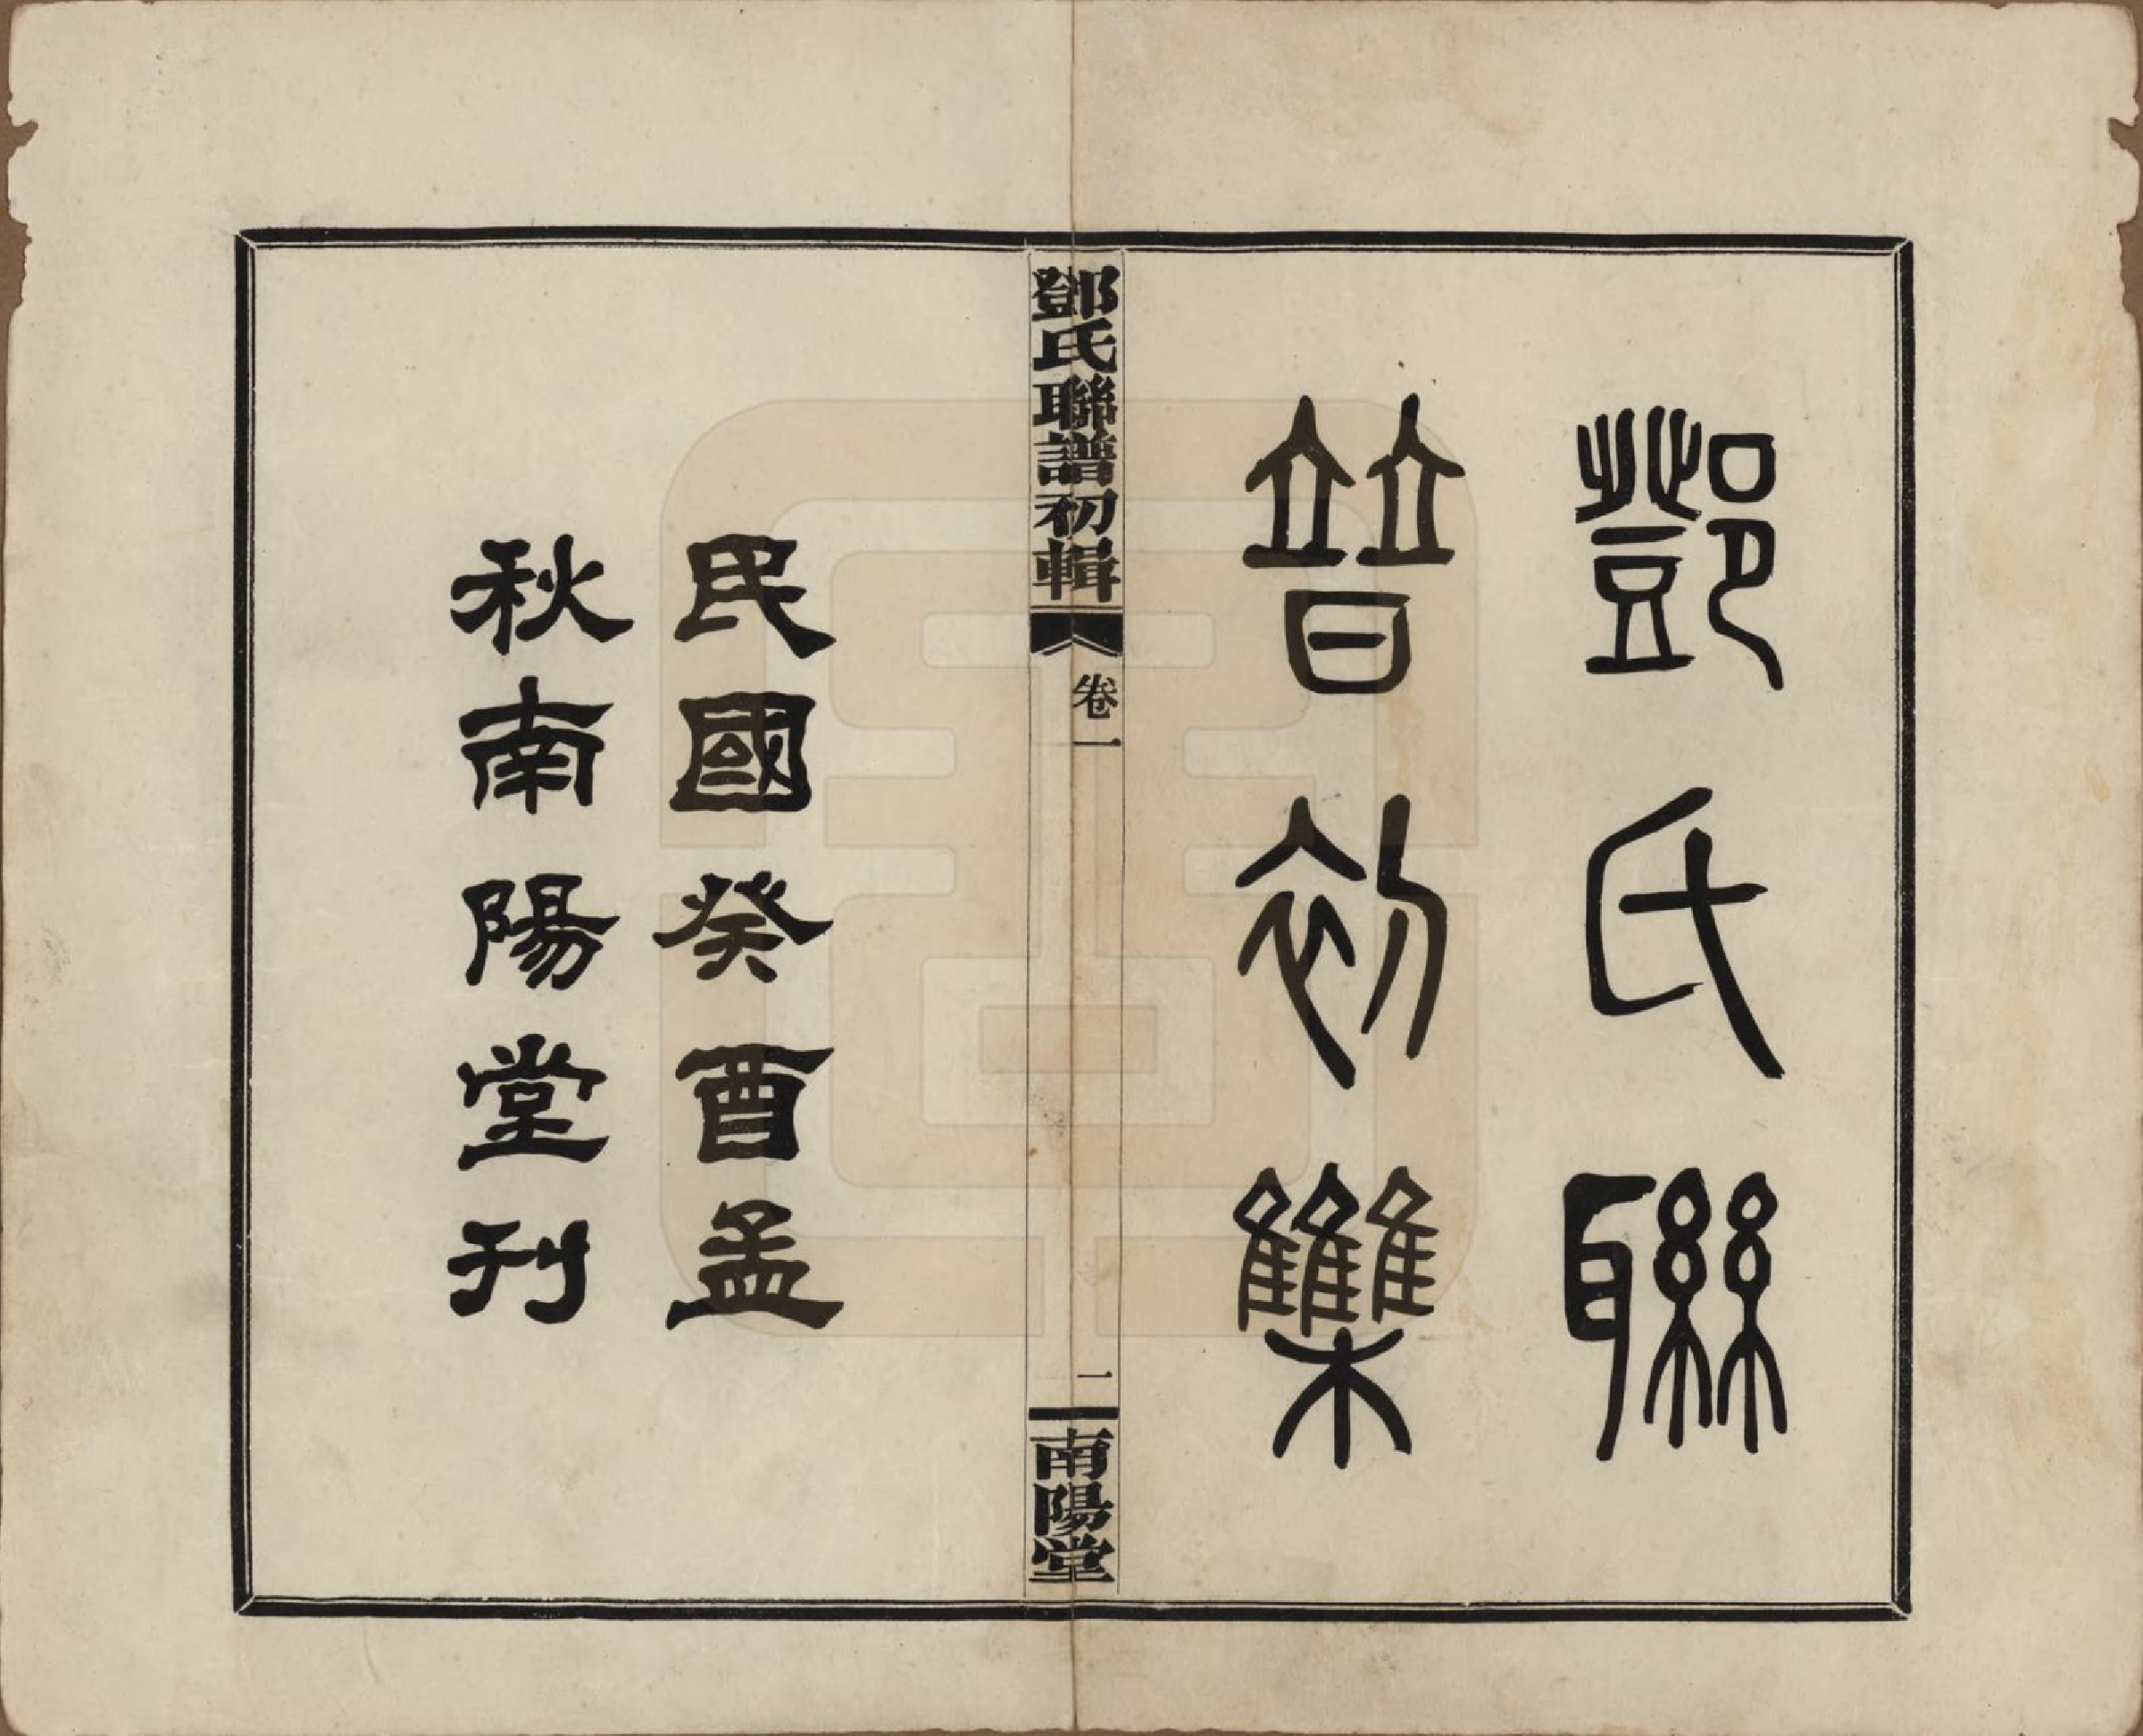 鄧氏聯
普初雧
鄧氏聯譜初輯
卷一
二
南陽堂
民國癸酉孟
秋南陽堂刊